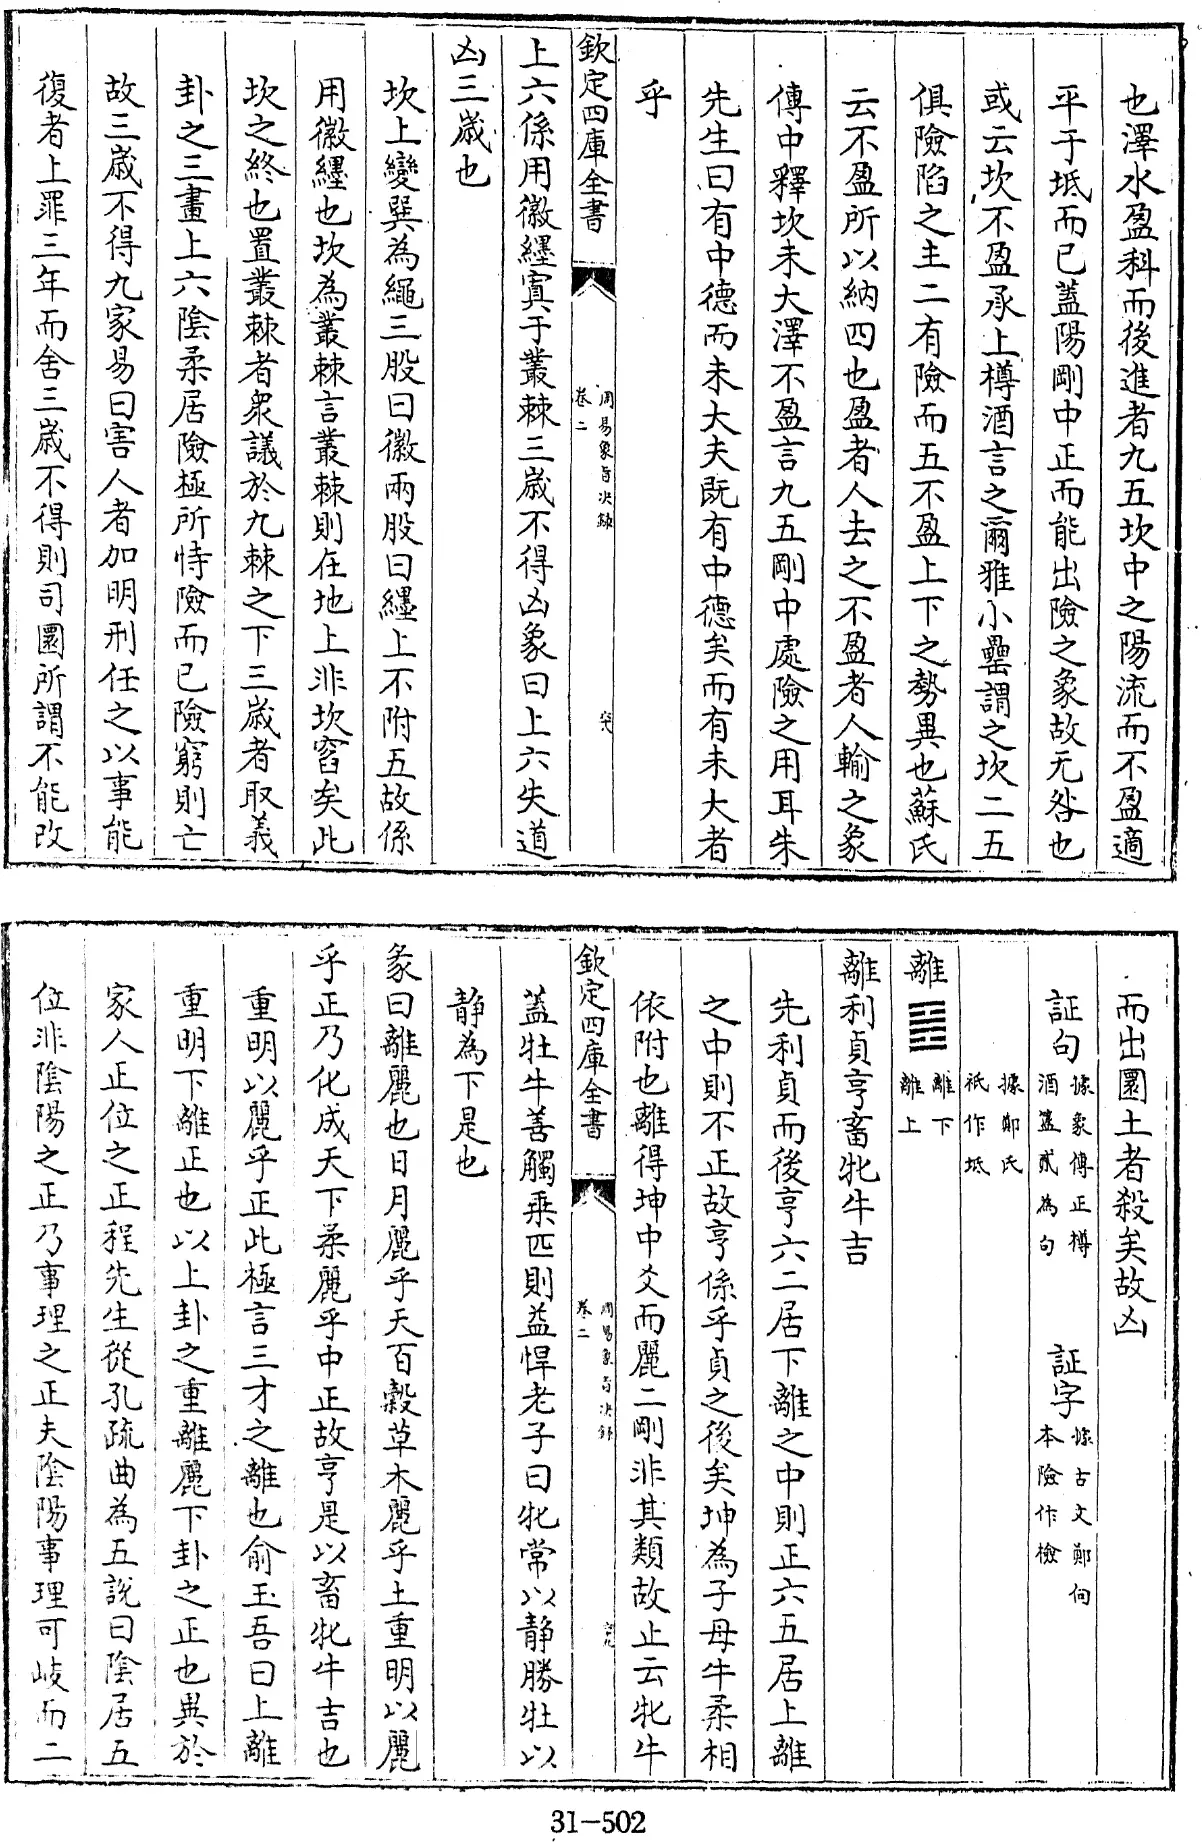 也澤水盈科而後進者九五坎中之陽流而不盈適
平于坻而已蓋陽剛中正而能出險之象故无咎也
或云坎不盈承上樽酒言之爾雅小罍謂之坎二五
俱險陷之主二有險而五不盈上下之勢異也蘇氏
云不盈所以納四也盈者人去之不盈者人輸之象
傳中釋坎未大澤不盈言九五剛中處險之用耳朱
先生曰有中德而未大夫既有中德矣而有未大者
乎
欽定四庫全書
周易象旨決錄
卷二
上六係用徽纆寘于叢棘三歲不得凶象曰上六失道
凶三歲也
坎上變巽為繩三股曰徽兩股曰纆上不附五故係
用徽纆也坎為叢棘言叢棘則在地上非坎窞矣此
坎之終也置叢棘者衆議於九棘之下三歲者取義
卦之三畫上六陰柔居險極所恃險而已險窮則亡
故三歲不得九家易曰害人者加明刑任之以事能
復者上罪三年而舍三歲不得則司圜所謂不能改
而出圜土者殺矣故凶
証句據象傳正樽
酒簋貳為句
証字據古文鄭向
本險作檢
據鄭氏
祇作坻
離䷝離下
離上
離利貞亨畜牝牛吉
先利貞而後亨六二居下離之中則正六五居上離
之中則不正故亨係乎貞之後矣坤為子母牛柔相
依附也離得坤中爻而麗二剛非其類故止云牝牛
欽定四庫全書
周易象旨決錄
卷二
蓋牡牛善觸乗匹則益悍老子曰牝常以靜勝牡以
靜為下是也
彖曰離麗也日月麗乎天百穀草木麗乎土重明以麗
乎正乃化成天下柔麗乎中正故亨是以畜牝牛吉也
重明以麗乎正此極言三才之離也俞玉吾曰上離
重明下離正也以上卦之重離麗下卦之正也異於
家人正位之正程先生從孔疏曲為五說曰陰居五
位非陰陽之正乃事理之正夫陰陽事理可岐而二
31-502